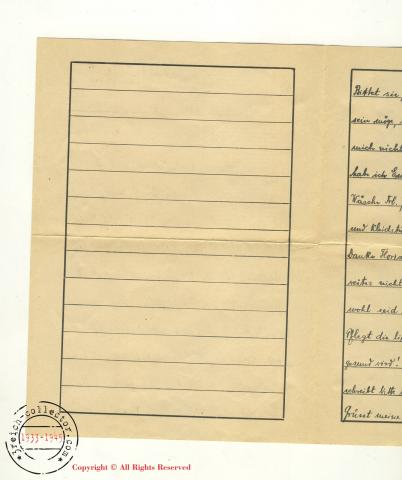 Bittet sie
sein möge,
mich nicht
hab ich Eu
Wäsche
und Kleidch
Danke Horst
weiter nicht
wohl seid
Pflegt die li
gesund wird!
schreibt bitte
Grüsst meine
3reich-collector.com
1933-1945
Copyright © All Rights Reserved